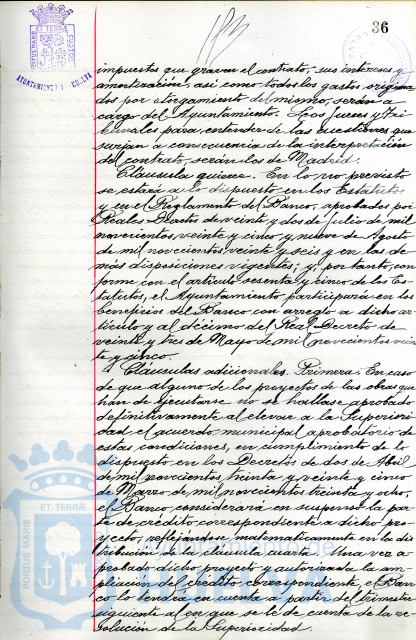 36
PORTUS MARIS ET TERRAE CUSTOS
AYUNTAMIENTO
HUELVA
impuestos que graven el contrato, sus intereses y
amortización, así como todos los gastos origina
dos por otorgamiento del mismo, serán a
cargo del Ayuntamiento. Los Jueces y Tri
bunales para entender de las cuestiones que
surjan a consecuencia de la interpretación
del contrato, serán los de Madrid.
Cláusula quince. En lo no previsto
se estará a lo dispuesto en los Estatutos
y en el Reglamento del Banco, aprobados por
Reales Decretos de veinte y dos de Julio de mil
novecientos veinte y cinco y nueve de Agosto
de mil novecientos veinte y seis y en las de
más disposiciones vigentes; y, por tanto, con
forme con el artículo sesenta y cinco de los Es
tatutos, el Ayuntamiento participará en los
beneficios del Banco con arreglo a dicho ar
tículo y al décimo del Real Decreto de
veinte y tres de Mayo de mil novecientos vein
te y cinco.
Cláusulas adicionales. Primera. En caso
de que alguno de los proyectos de las obras que
han de ejecutarse no se hallase aprobado
definitivamente al elevar a la Superiori
dad el acuerdo municipal aprobatorio de
estas condiciones, en cumplimiento de lo
dispuesto en los Decretos de dos de Abril
de mil novecientos treinta y veinte y cinco
de Marzo de mil novecientos treinta y ocho,
el Banco considerará en suspenso la par
te de crédito correspondiente a dicho pro
yecto, reflejándose automáticamente en la dis
tribución la cuenta. Una vez a
probado dicho proyecto y autorizada la am
pliación del crédito correspondiente, el Ban
co lo tendrá en cuenta a partir del trimestre
siguiente al en que se le dé cuenta de la re
solución de la Superioridad.
PORTUS MARIS ET TERRAE
Ayuntamiento de
HUELVA